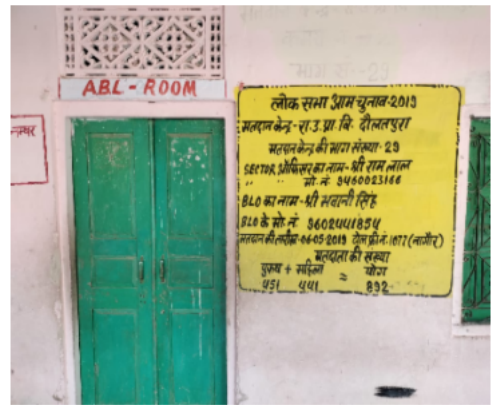 ABL - ROOM
लोक सभा आम चुनाव-2019
मतदान केन्द्र - रा.उ.प्रा.वि. दौलतपुरा
मतदान केन्द्र की भाग संख्या - 29
SECTOR ऑफिसर का नाम - श्री राम लाल
" " मो. नं. 9460023166
BLO का नाम - श्री भवानी सिंह
BLO के मो. नं. 9602441854
मतदान की तारीख - 06-05-2019 टोल फ्री नं. 1077 (नागौर)
मतदाता की संख्या
पुरुष + महिला = योग
451 441 892